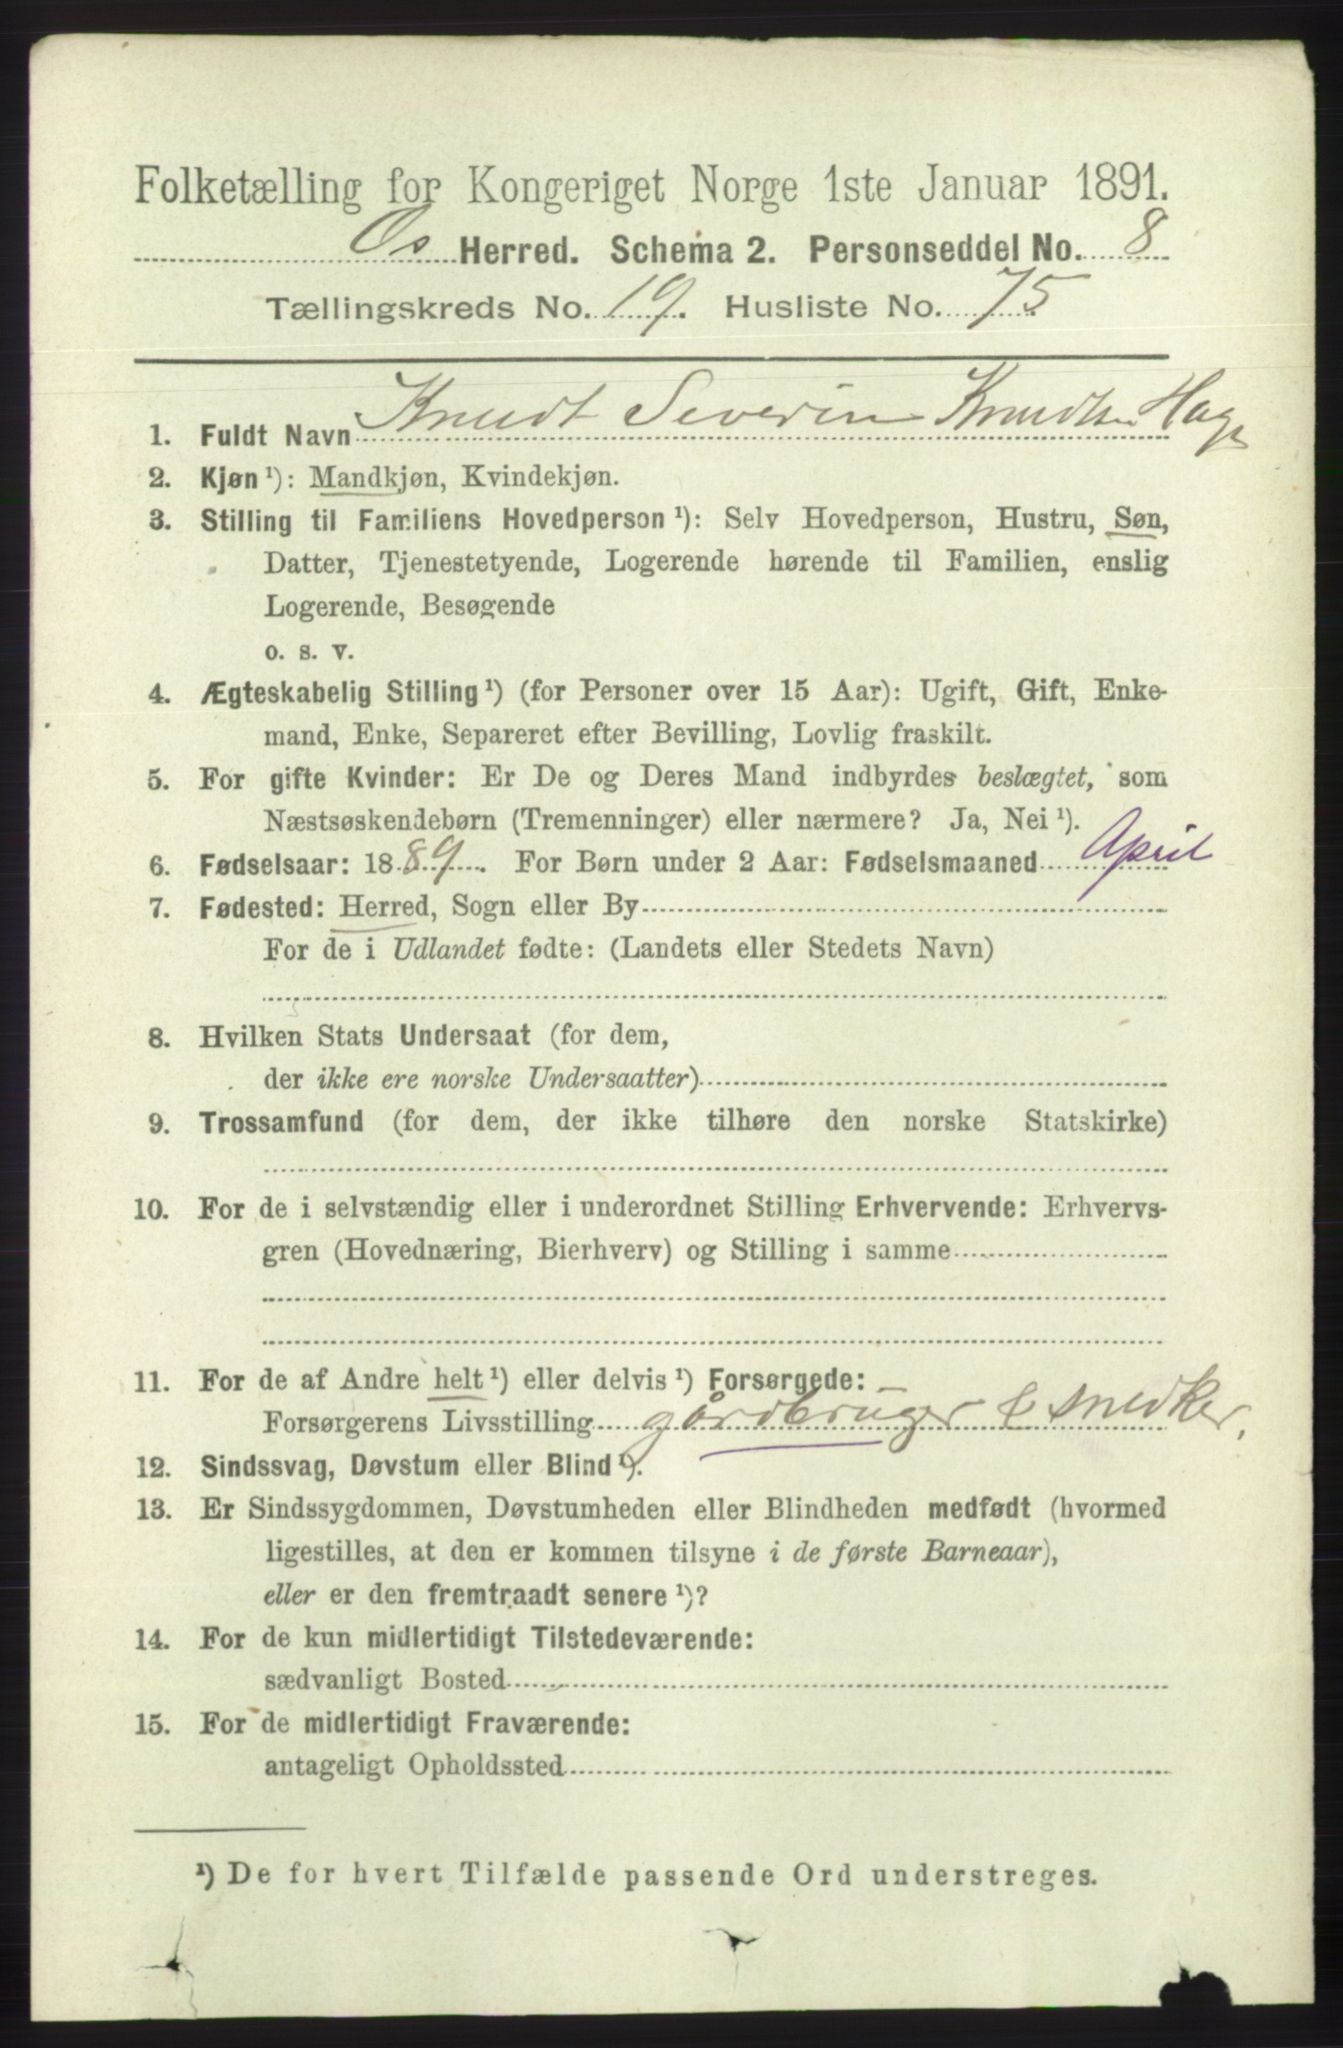 Folketælling for Kongeriget Norge 1ste Januar 1891.
Os Herred. Schema 2. Personseddel No. 8
Tællingskreds No. 19. Husliste No. 75
1. Fuldt Navn Knudt Severin Knudtsen Hage
2. Kjøn ¹): Mandkjøn, Kvindekjøn.
3. Stilling til Familiens Hovedperson ¹): Selv Hovedperson, Hustru, Søn,
Datter, Tjenestetyende, Logerende hørende til Familien, enslig
Logerende, Besøgende
o. s. v.
4. Ægteskabelig Stilling ¹) (for Personer over 15 Aar): Ugift, Gift, Enke-
mand, Enke, Separeret efter Bevilling, Lovlig fraskilt.
5. For gifte Kvinder: Er De og Deres Mand indbyrdes beslægtet, som
Næstsøskendebørn (Tremenninger) eller nærmere? Ja, Nei ¹).
6. Fødselsaar: 1889. For Børn under 2 Aar: Fødselsmaaned April
7. Fødested: Herred, Sogn eller By
For de i Udlandet fødte: (Landets eller Stedets Navn)
8. Hvilken Stats Undersaat (for dem,
der ikke ere norske Undersaatter)
9. Trossamfund (for dem, der ikke tilhøre den norske Statskirke)
10. For de i selvstændig eller i underordnet Stilling Erhvervende: Erhvervs-
gren (Hovednæring, Bierhverv) og Stilling i samme
11. For de af Andre helt ¹) eller delvis ¹) Forsørgede:
Forsørgerens Livsstilling gårdbruger & snedker.
12. Sindssvag, Døvstum eller Blind ¹).
13. Er Sindssygdommen, Døvstumheden eller Blindheden medfødt (hvormed
ligestilles, at den er kommen tilsyne i de første Barneaar),
eller er den fremtraadt senere ¹)?
14. For de kun midlertidigt Tilstedeværende:
sædvanligt Bosted
15. For de midlertidigt Fraværende:
antageligt Opholdssted
¹) De for hvert Tilfælde passende Ord understreges.